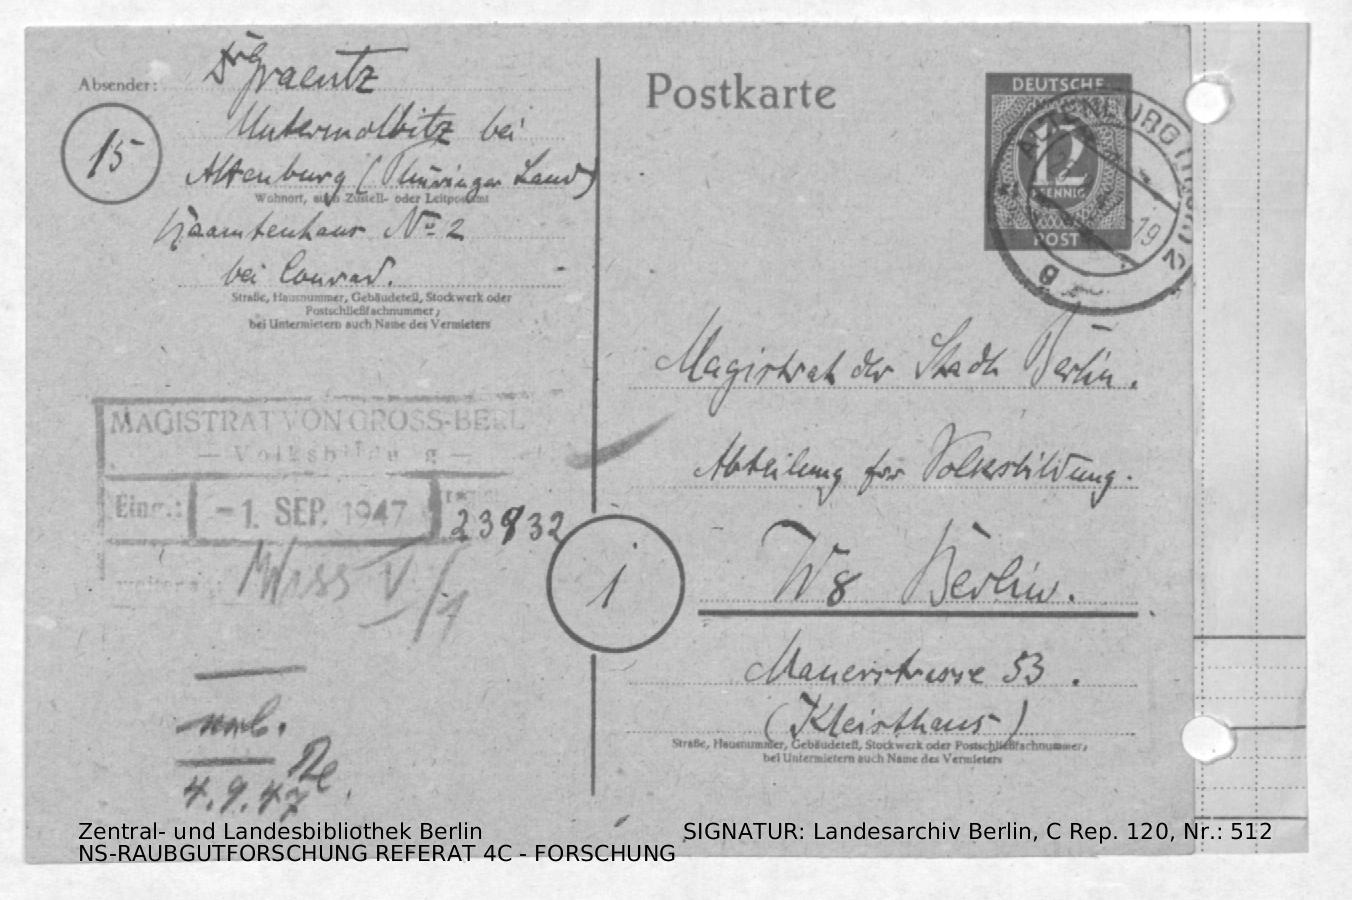 Absender: Dr Graentz
15
Untermolbitz bei
Altenburg (Thüringer Land)
Wohnort, auch Zustell- oder Leitpostamt
Beamtenhaus No 2
bei Conrad.
Straße, Hausnummer, Gebäudeteil, Stockwerk oder
Postschließfachnummer,
bei Untermietern auch Name des Vermieters
MAGISTRAT VON GROSS-BERL
— Volksbildung —
Eing.: -1. SEP. 1947
23832
Wiss V/1
4.9.47
Postkarte
DEUTSCHE
12
PFENNIG
POST
ALTENBURG (THÜR) 2
-19
g
Magistrat der Stadt Berlin.
Abteilung für Volksbildung.
1
W8 Berlin.
Mauerstrasse 53.
(Kleisthaus)
Straße, Hausnummer, Gebäudeteil, Stockwerk oder Postschließfachnummer,
bei Untermietern auch Name des Vermieters
Zentral- und Landesbibliothek Berlin
NS-RAUBGUTFORSCHUNG REFERAT 4C - FORSCHUNG
SIGNATUR: Landesarchiv Berlin, C Rep. 120, Nr.: 512